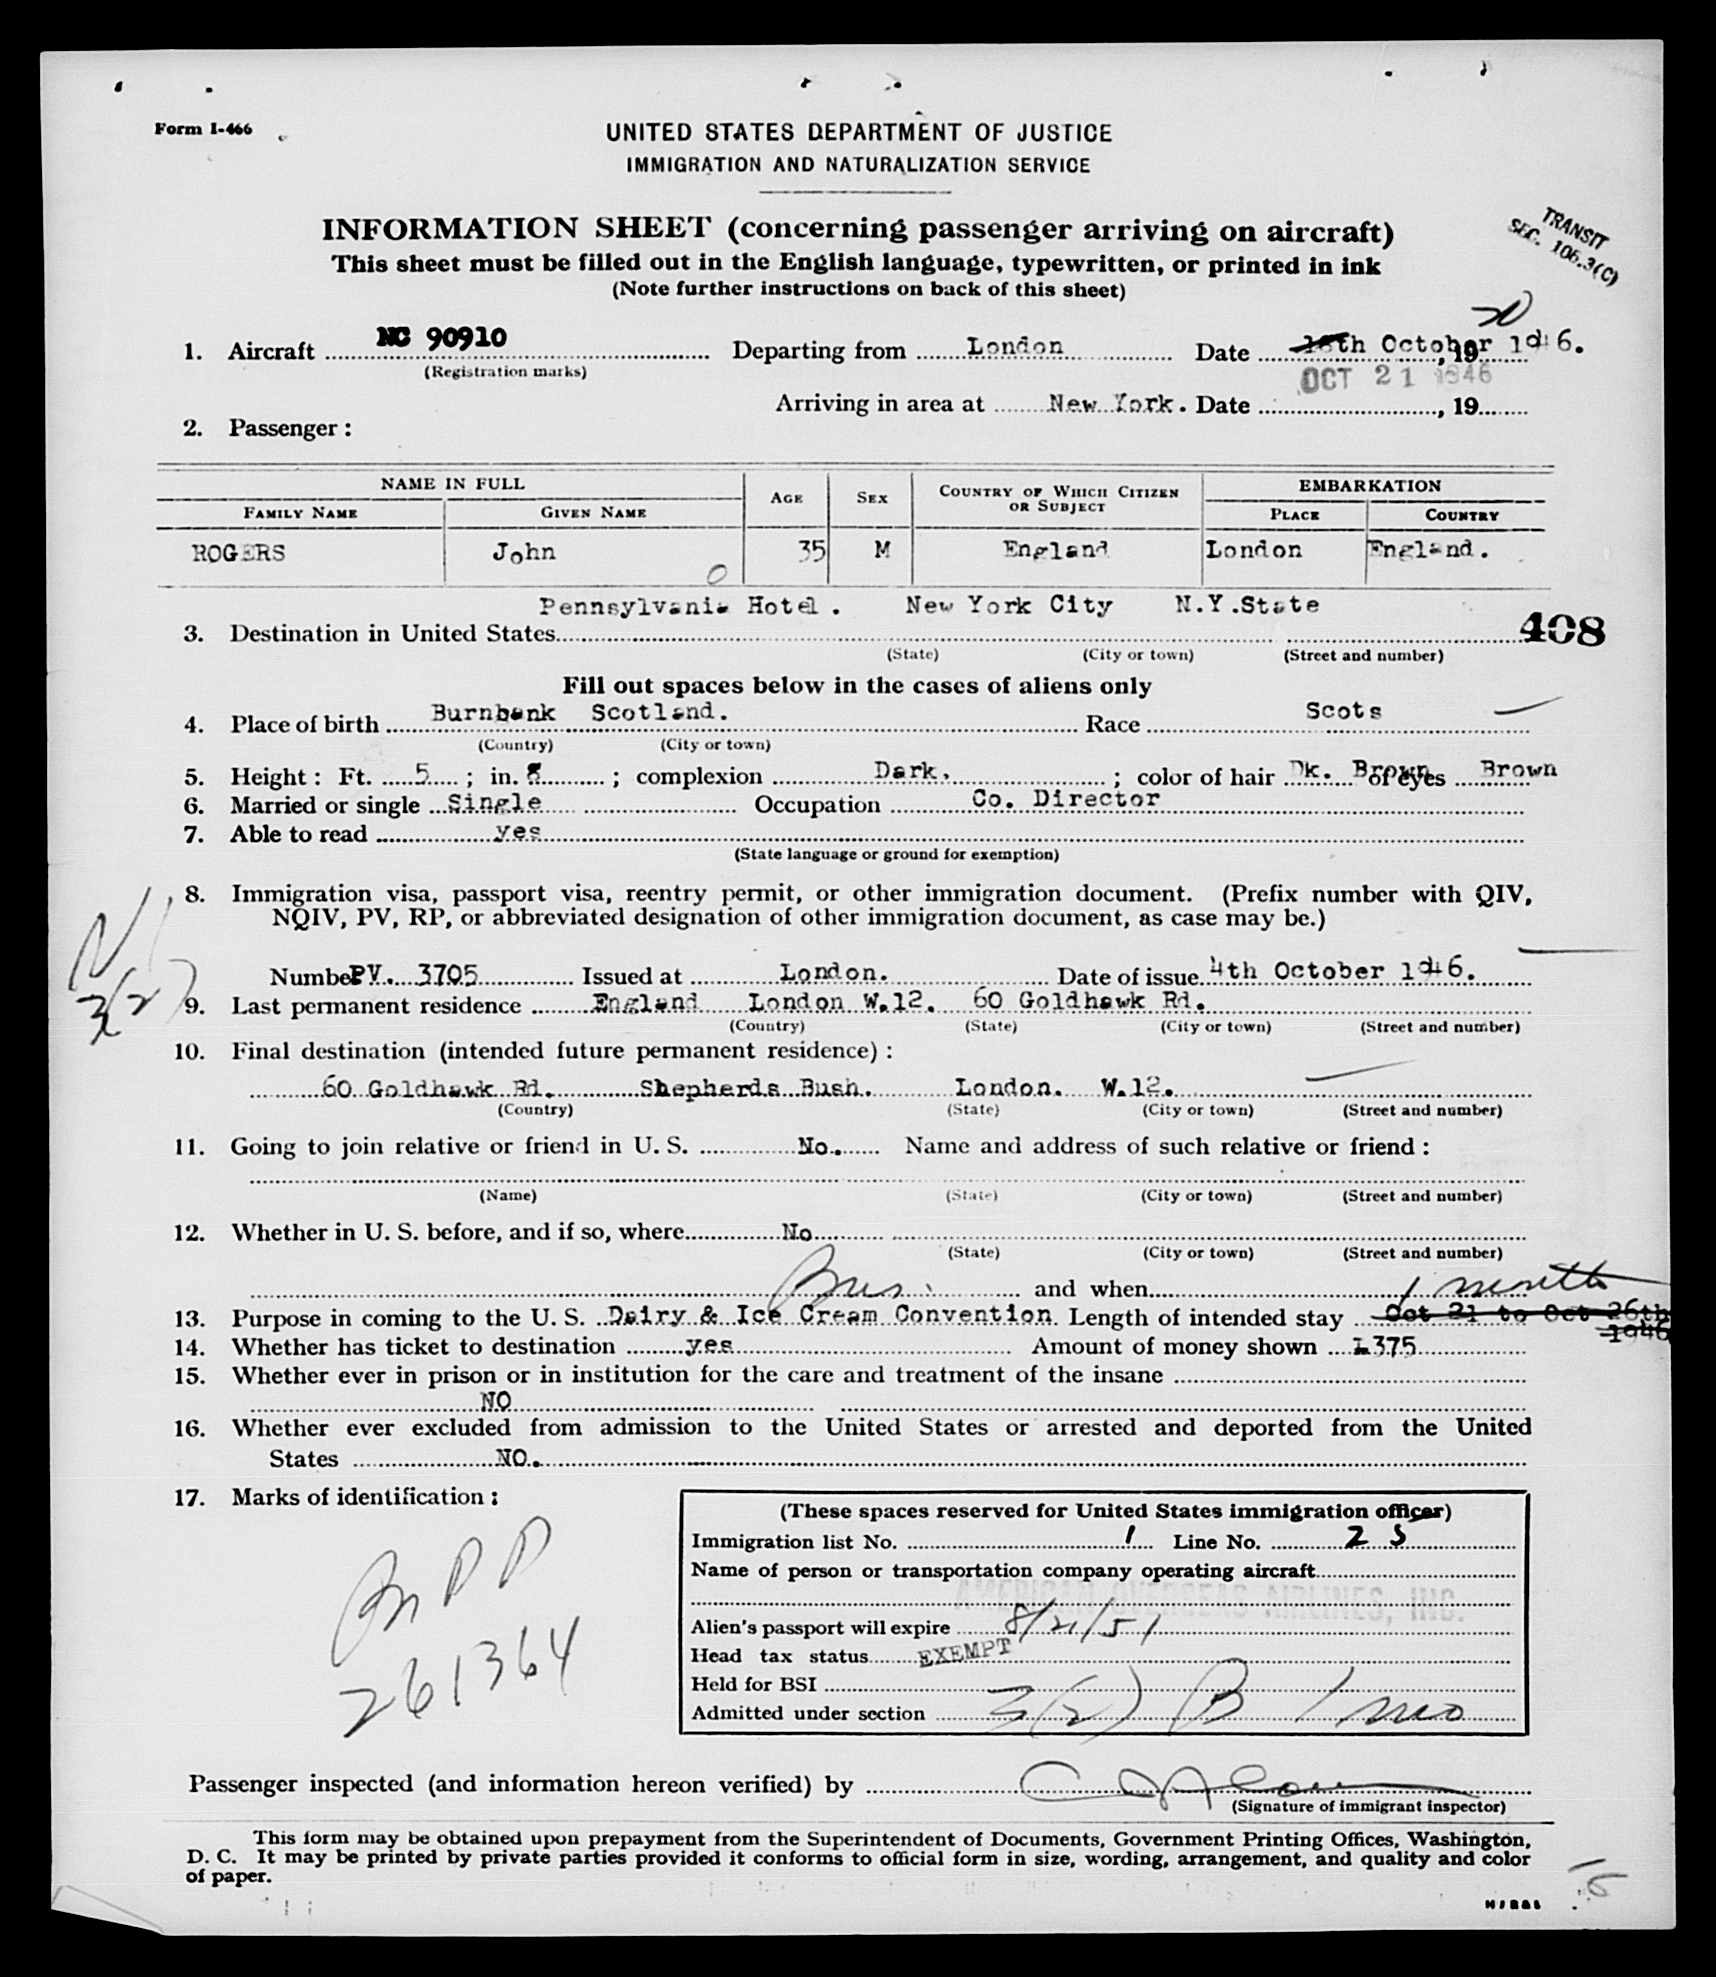 Form I-466
UNITED STATES DEPARTMENT OF JUSTICE
IMMIGRATION AND NATURALIZATION SERVICE
INFORMATION SHEET (concerning passenger arriving on aircraft)
This sheet must be filled out in the English language, typewritten, or printed in ink
(Note further instructions on back of this sheet)
TRANSIT
SEC. 106.3(C)
20
1. Aircraft NC 90910 Departing from London Date 18th October 1946. , 19
(Registration marks)
OCT 21 1946
Arriving in area at New York. Date , 19
2. Passenger:
NAME IN FULL AGE SEX COUNTRY OF WHICH CITIZEN OR SUBJECT EMBARKATION
FAMILY NAME GIVEN NAME PLACE COUNTRY
ROGERS John 35 M England London England.
Pennsylvania Hotel. New York City N.Y.State
3. Destination in United States 408
(State) (City or town) (Street and number)
Fill out spaces below in the cases of aliens only
4. Place of birth Burnbank Scotland. Race Scots
(Country) (City or town)
5. Height: Ft. 5; in. 8; complexion Dark. ; color of hair Dk. Brown of eyes Brown
6. Married or single Single Occupation Co. Director
7. Able to read yes
(State language or ground for exemption)
8. Immigration visa, passport visa, reentry permit, or other immigration document. (Prefix number with QIV,
NQIV, PV, RP, or abbreviated designation of other immigration document, as case may be.)
Number PV. 3705 Issued at London. Date of issue 4th October 1946.
3(2)
9. Last permanent residence England London W.12. 60 Goldhawk Rd.
(Country) (State) (City or town) (Street and number)
10. Final destination (intended future permanent residence):
60 Goldhawk Rd. Shepherds Bush. London. W.12.
(Country) (State) (City or town) (Street and number)
11. Going to join relative or friend in U. S. No. Name and address of such relative or friend:
(Name) (State) (City or town) (Street and number)
12. Whether in U. S. before, and if so, where No
(State) (City or town) (Street and number)
Bus. and when 1 month
13. Purpose in coming to the U. S. Dairy & Ice Cream Convention Length of intended stay Oct 21 to Oct 26th
1946
14. Whether has ticket to destination yes Amount of money shown £375
15. Whether ever in prison or in institution for the care and treatment of the insane
NO
16. Whether ever excluded from admission to the United States or arrested and deported from the United
States NO.
17. Marks of identification:
261364
(These spaces reserved for United States immigration officer)
Immigration list No. 1 Line No. 25
Name of person or transportation company operating aircraft
AMERICAN OVERSEAS AIRLINES, INC.
Alien's passport will expire 8/21/51
Head tax status EXEMPT
Held for BSI
Admitted under section 3(2) B 1 mo
Passenger inspected (and information hereon verified) by
(Signature of immigrant inspector)
This form may be obtained upon prepayment from the Superintendent of Documents, Government Printing Offices, Washington,
D. C. It may be printed by private parties provided it conforms to official form in size, wording, arrangement, and quality and color
of paper.